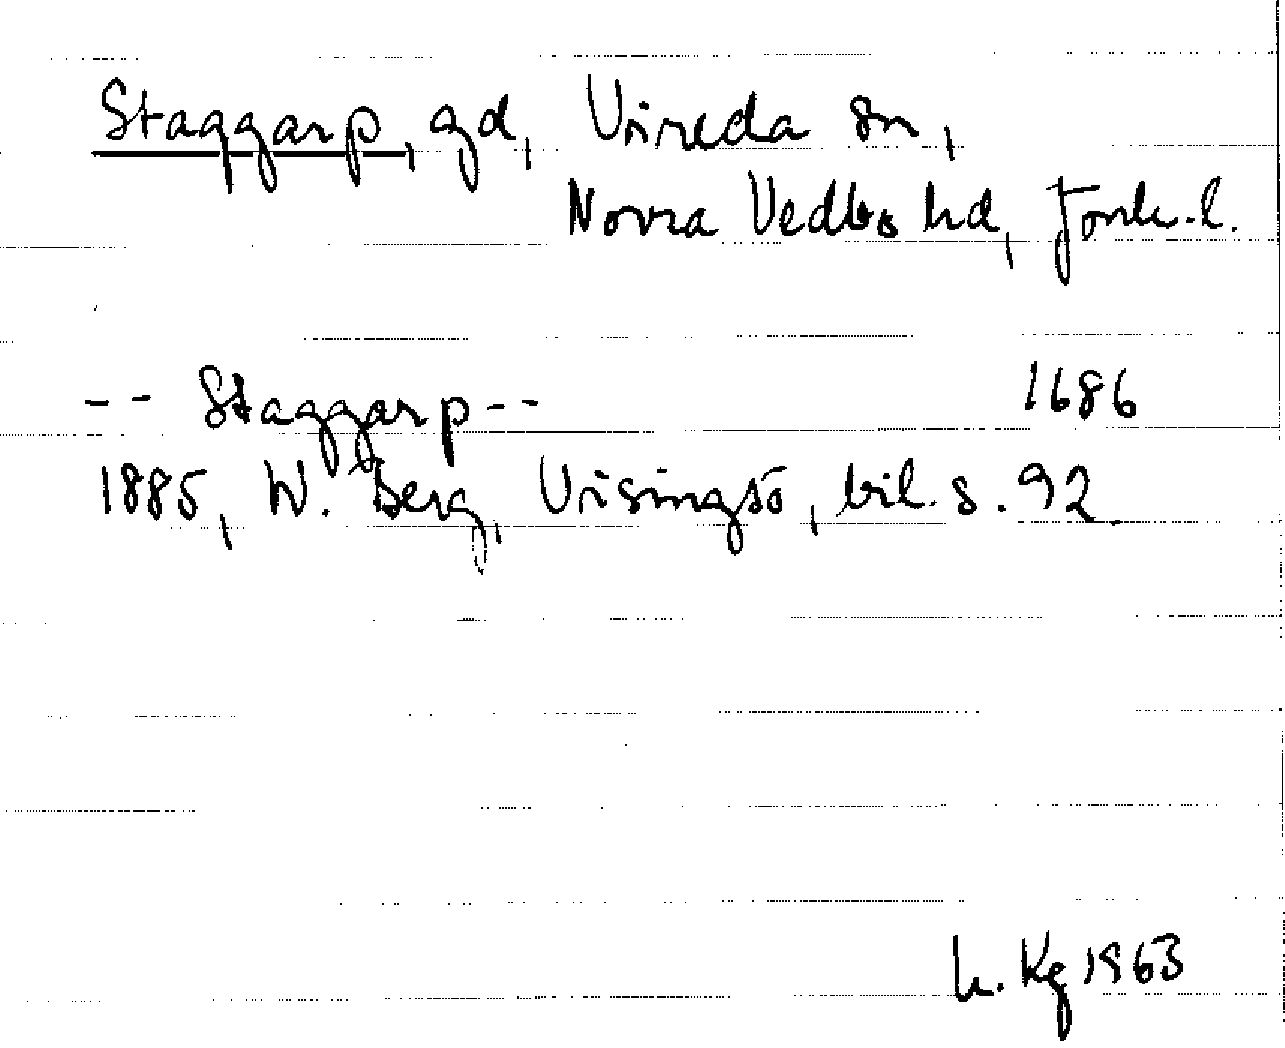 Staggarp, gd, Vireda sn,
Norra Vedbo hd, Jönk. l.
-- Staggarp -- 1686
1885, W. Berg, Visingsö, bil. s. 92
Kg 1963